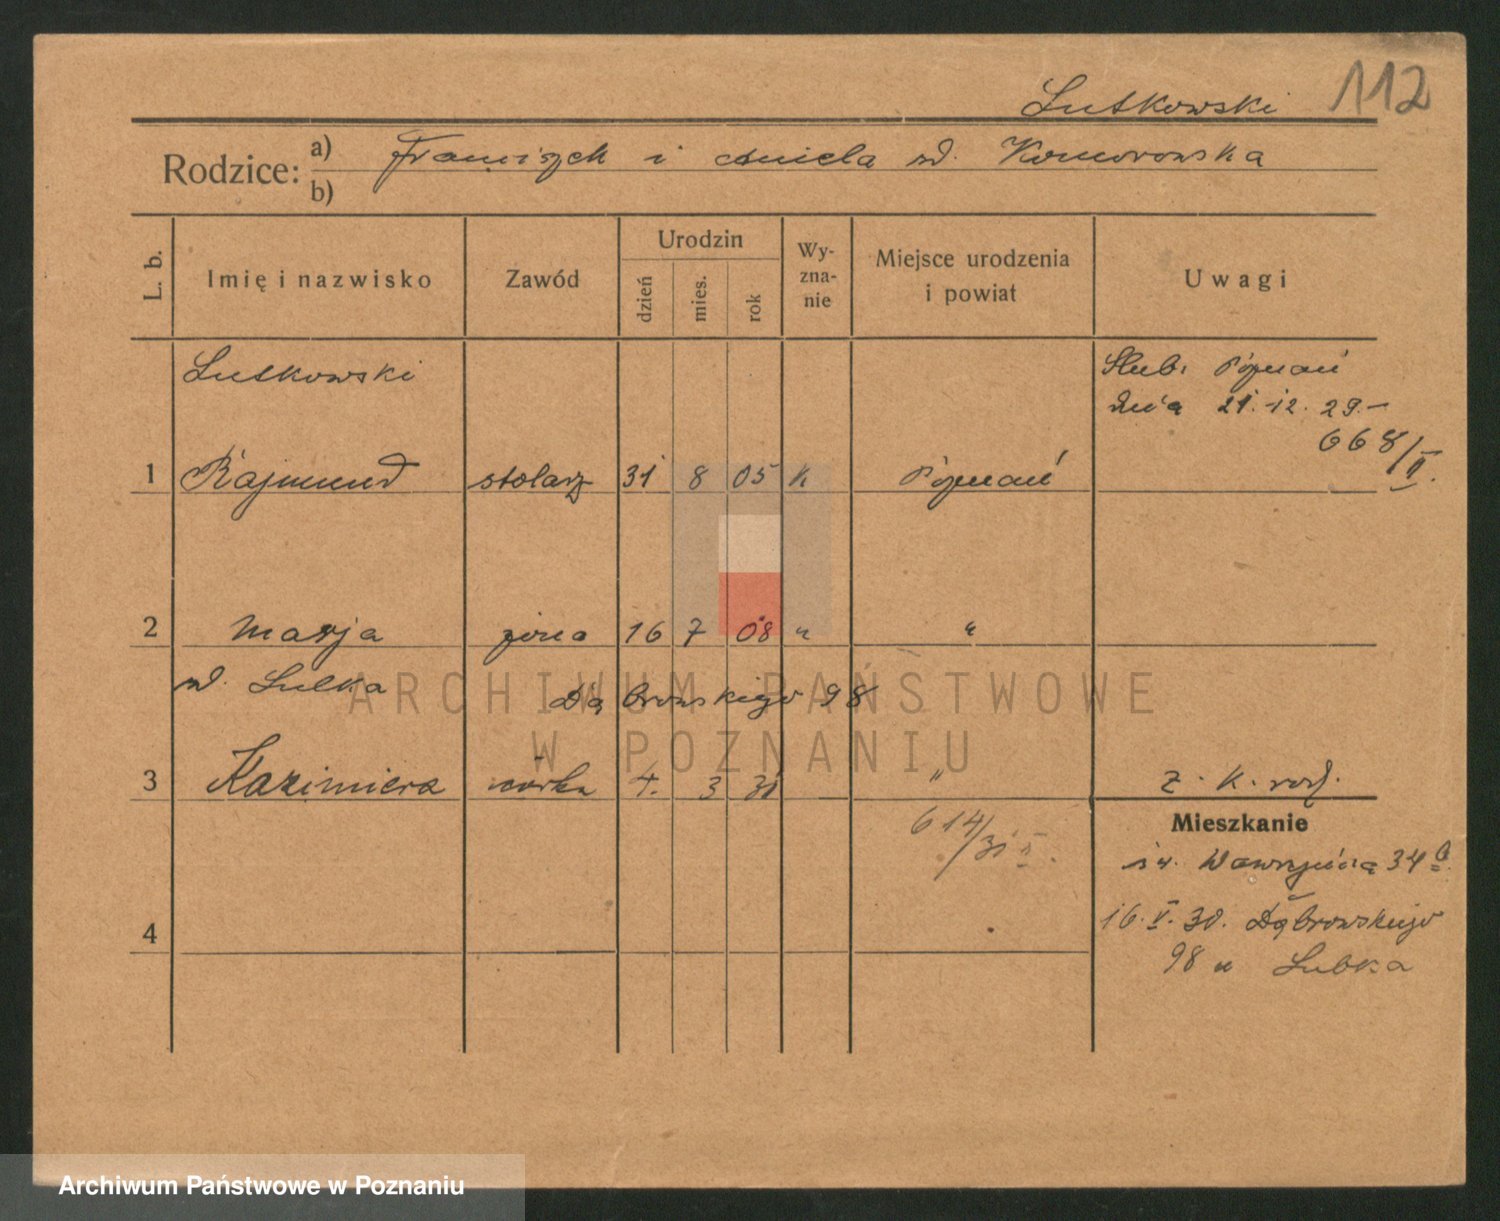 112
Lutkowski
Rodzice: a) Franciszek i Aniela zd. Komorowska
b)
L. b. Imię i nazwisko Zawód Urodzin dzień mies. rok Wyznanie Miejsce urodzenia i powiat Uwagi
Lutkowski Ślub: Poznań
dnia 21.-12. 29.-
668/II.
1 Rajmund stolarz 31 8 05 k Poznań
2 Marja żona 16 7 08 " "
zd. Lulka Dąbrowskiego 98
3 Kazimiera córka 4. 3 31 " z. k. rod.
614/31 II.
Mieszkanie
św. Wawrzyńca 34a
16. V. 30. Dąbrowskiego
4
98 u Lubka
ARCHIWUM PAŃSTWOWE
W POZNANIU
Archiwum Państwowe w Poznaniu